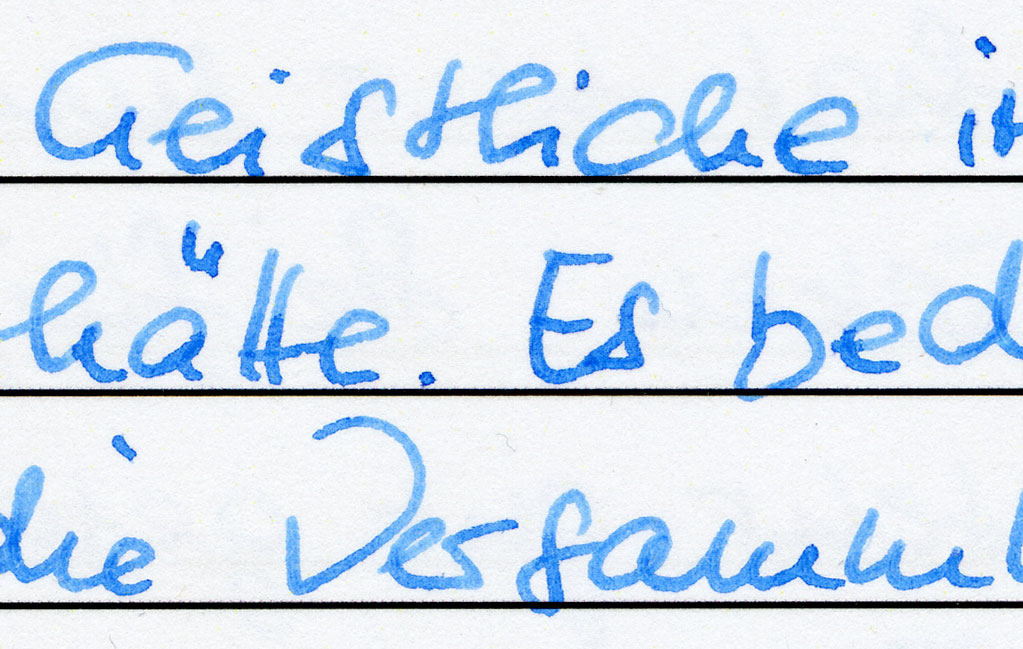 Geistliche
hätte. Es bed
die Versamml